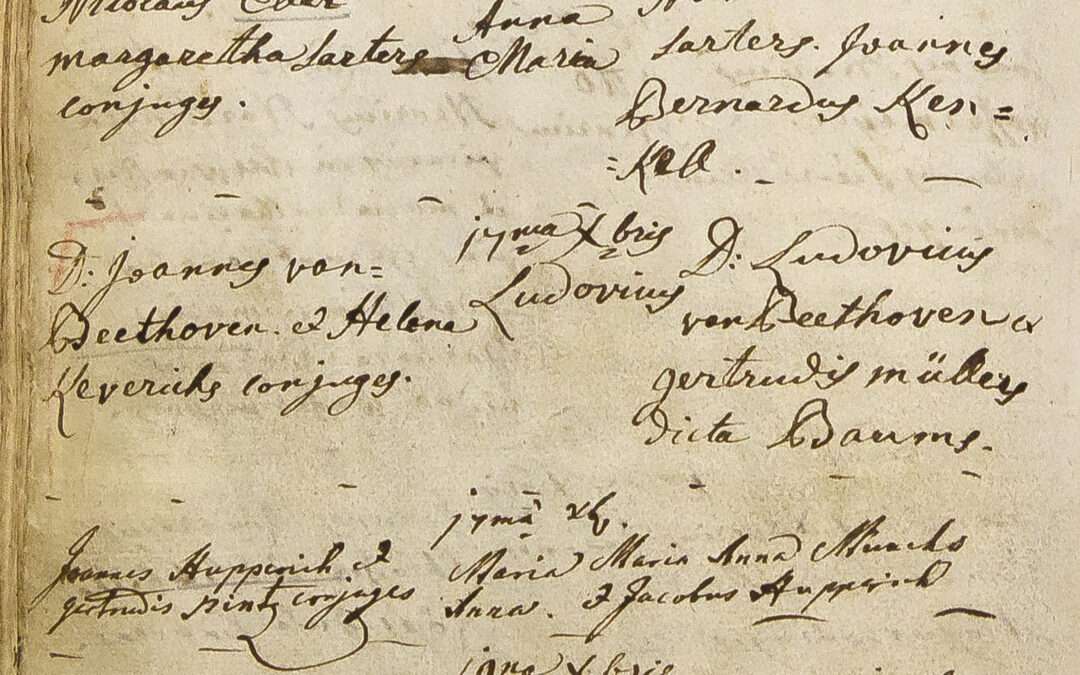 Nicolaus
margaretha Sarters
conjuges.
Anna
Maria
Sarters. Joannes
Bernardus Ken=
=Kel.
D: Joannes van=
Beethoven. & Helena
Keverichs conjuges.
17ma Xbris
Ludovicus
D: Ludovicus
van Beethoven &
gertrudis müllers
dicta Baums.
Joannes Hupperich &
gertrudis conjuges
17ma xb.
Maria
Anna.
Maria Anna Munchs
& Jacobus Hupperich
Xbris